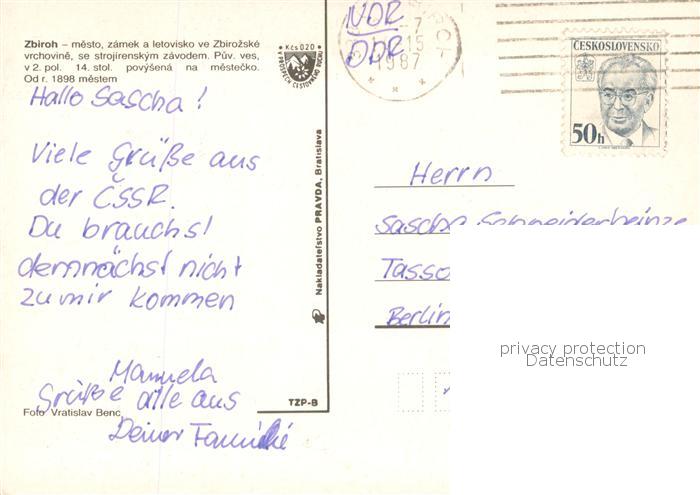 Zbiroh – město, zámek a letovisko ve Zbirožské
vrchovině, se strojírenským závodem. Pův. ves,
v 2. pol. 14. stol. povýšená na městečko.
Od r. 1898 městem
Kčs 0,20
Hallo Sascha!
Viele Grüße aus
der ČSSR.
Du brauchst
demnächst nicht
zu mir kommen
Manuela
Grüße alle aus
Deiner Familie
Foto Vratislav Benc
TZP-B
Nakladatelství PRAVDA, Bratislava
NDR
DDR
-7
15
1987
ČESKOSLOVENSKO
50h
Herrn
Sascha Schneiderheinze
Tasso
Berlin
privacy protection
Datenschutz